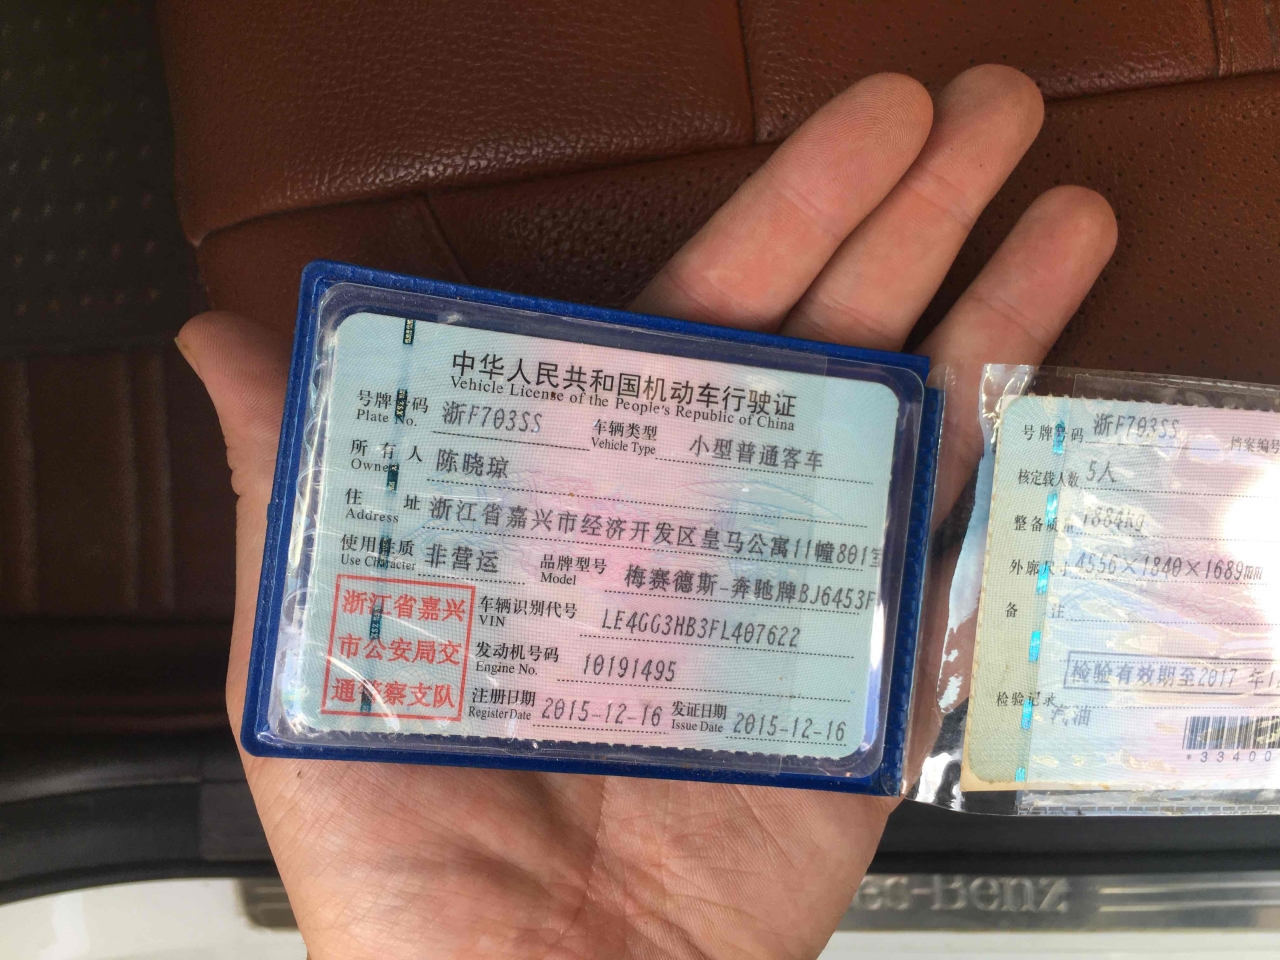 中华人民共和国机动车行驶证
Vehicle License of the People's Republic of China
号牌号码 浙F703SS 车辆类型 小型普通客车
Plate No. Vehicle Type
所有人 陈晓琼
Owner
住址 浙江省嘉兴市经济开发区皇马公寓11幢801室
Address
使用性质 非营运 品牌型号 梅赛德斯-奔驰牌BJ6453F
Use Character Model
浙江省嘉兴
市公安局交
通警察支队
车辆识别代号 LE4GG3HB3FL407622
VIN
发动机号码 10191495
Engine No.
注册日期 2015-12-16 发证日期 2015-12-16
Register Date Issue Date
号牌号码 浙F703SS 档案编号
核定载人数 5人
整备质量 1884kg
外廓尺寸 4556×1840×1689mm
备注
检验有效期至2017年1
检验记录
汽油
*33400
ec-Benz